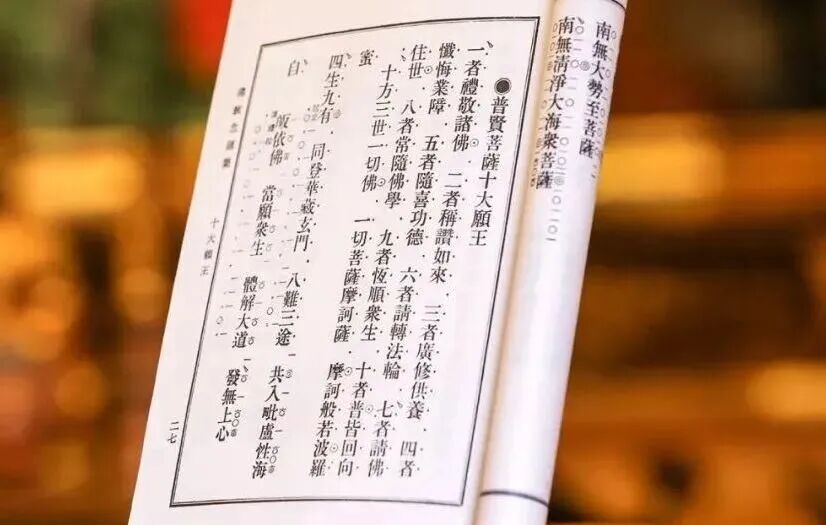 南無大勢至菩薩
南無清淨大海衆菩薩
●普賢菩薩十大願王
一者禮敬諸佛．二者稱讚如來．三者廣修供養．四者
懺悔業障．五者隨喜功德．六者請轉法輪．七者請佛
住世．八者常隨佛學．九者恆順衆生．十者普皆回向
十方三世一切佛．一切菩薩摩訶薩．摩訶般若波羅
蜜
四生九有．同登華藏玄門．八難三途．共入毗盧性海
自 皈依佛 當願衆生 體解大道 發無上心
佛教念誦集 十大願王 二七